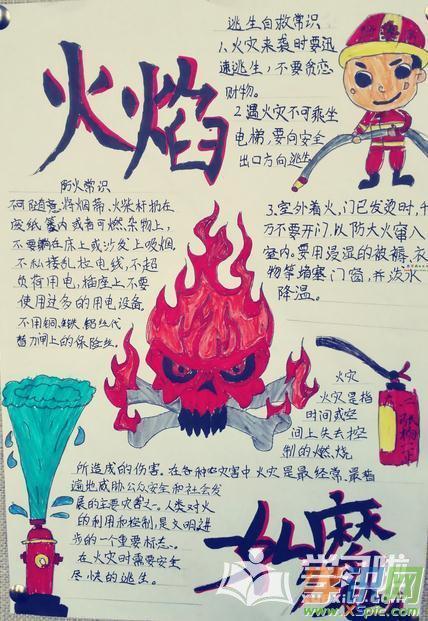 火焰
逃生自救常识
1、火灾来袭时要迅
速逃生，不要贪恋
财物。
2、遇火灾不可乘坐
电梯，要向安全
出口方向逃生
防火常识
不可随意将烟蒂、火柴杆扔在
废纸篓内或者可燃杂物上，
不要躺在床上或沙发上吸烟
不私接乱拉电线，不超
负荷用电，插座上不要
使用过多的用电设备
不用铜、铁、铝丝代
替刀闸上的保险丝。
3、室外着火，门已发烫时，千
万不要开门，以防大火窜入
室内。要用浸湿的被褥、衣
物等堵塞门窗，并泼水
降温。
火灾
火灾是指
时间或空
间上失去控
制的燃烧
所造成的伤害。在各种灾害中火灾是最经常、最普
遍地威胁公众安全和社会发
展的主要灾害之一。人类对火
的利用和控制，是文明进
步的一个重要标志。
在火灾时需要安全
尽快的逃生。
如魔
www.XSpic.com